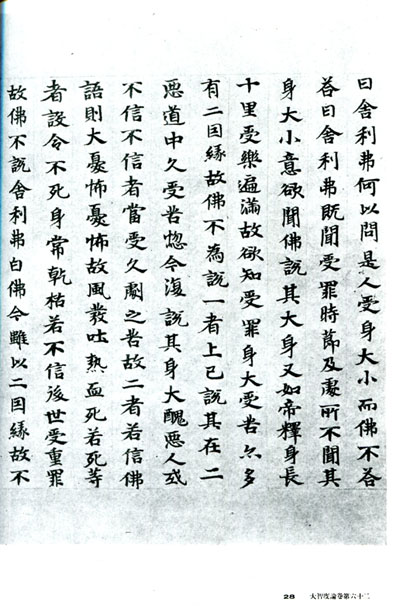 曰舍利弗何以問是人受身大小而佛不荅
荅曰舍利弗既聞受罪時節及處所不聞其
身大小意欲聞佛說其大身又如帝釋身長
十里受樂遍滿故欲知受罪身大受苦亦多
有二因緣故佛不為說一者上已說其在二
惡道中久受苦惱今復說其身大醜惡人或
不信不信者當受久劇之苦故二者若信佛
語則大憂怖憂怖故風發吐熱血死若死等
者設令不死身常乾枯若不信後世受重罪
故佛不說舍利弗白佛今雖以二因緣故不
28 大智度論卷第六十二